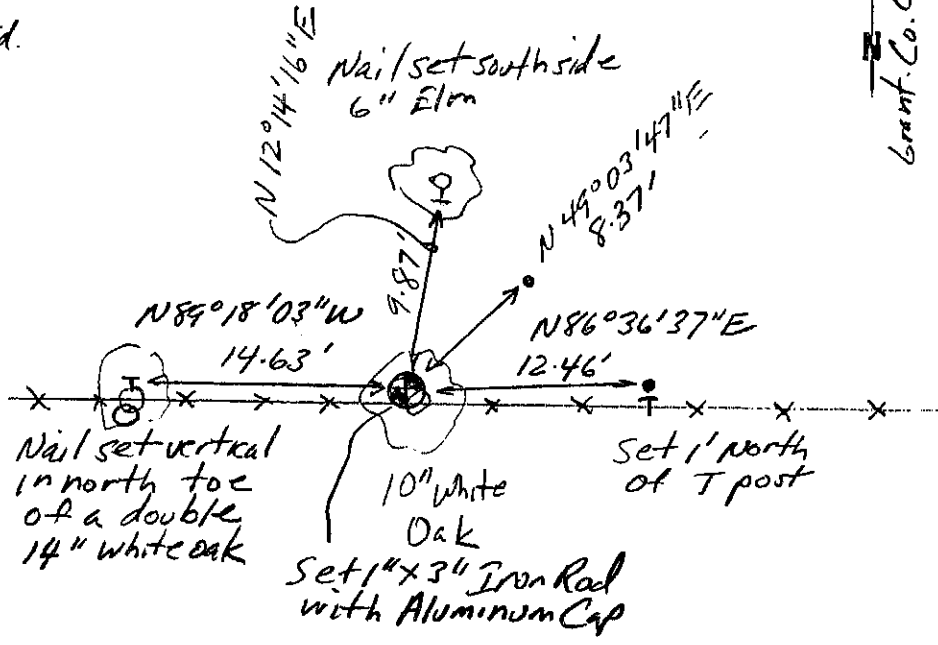 d.
Nail set south side
6" Elm
N 12°14'16"E
9.87'
N 49°03'47"E
8.37'
N89°18'03"W
14.63'
N86°36'37"E
12.46'
Nail set vertical
in north toe
of a double
14" white oak
10" White
Oak
Set 1' North
of T post
Set 1" X 3" Iron Rod
with Aluminum Cap
N
Grant. Co.